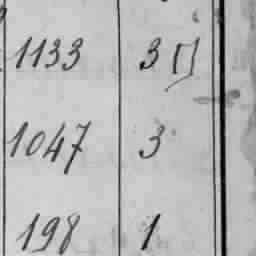 1133 3 []
1047 3
198 1